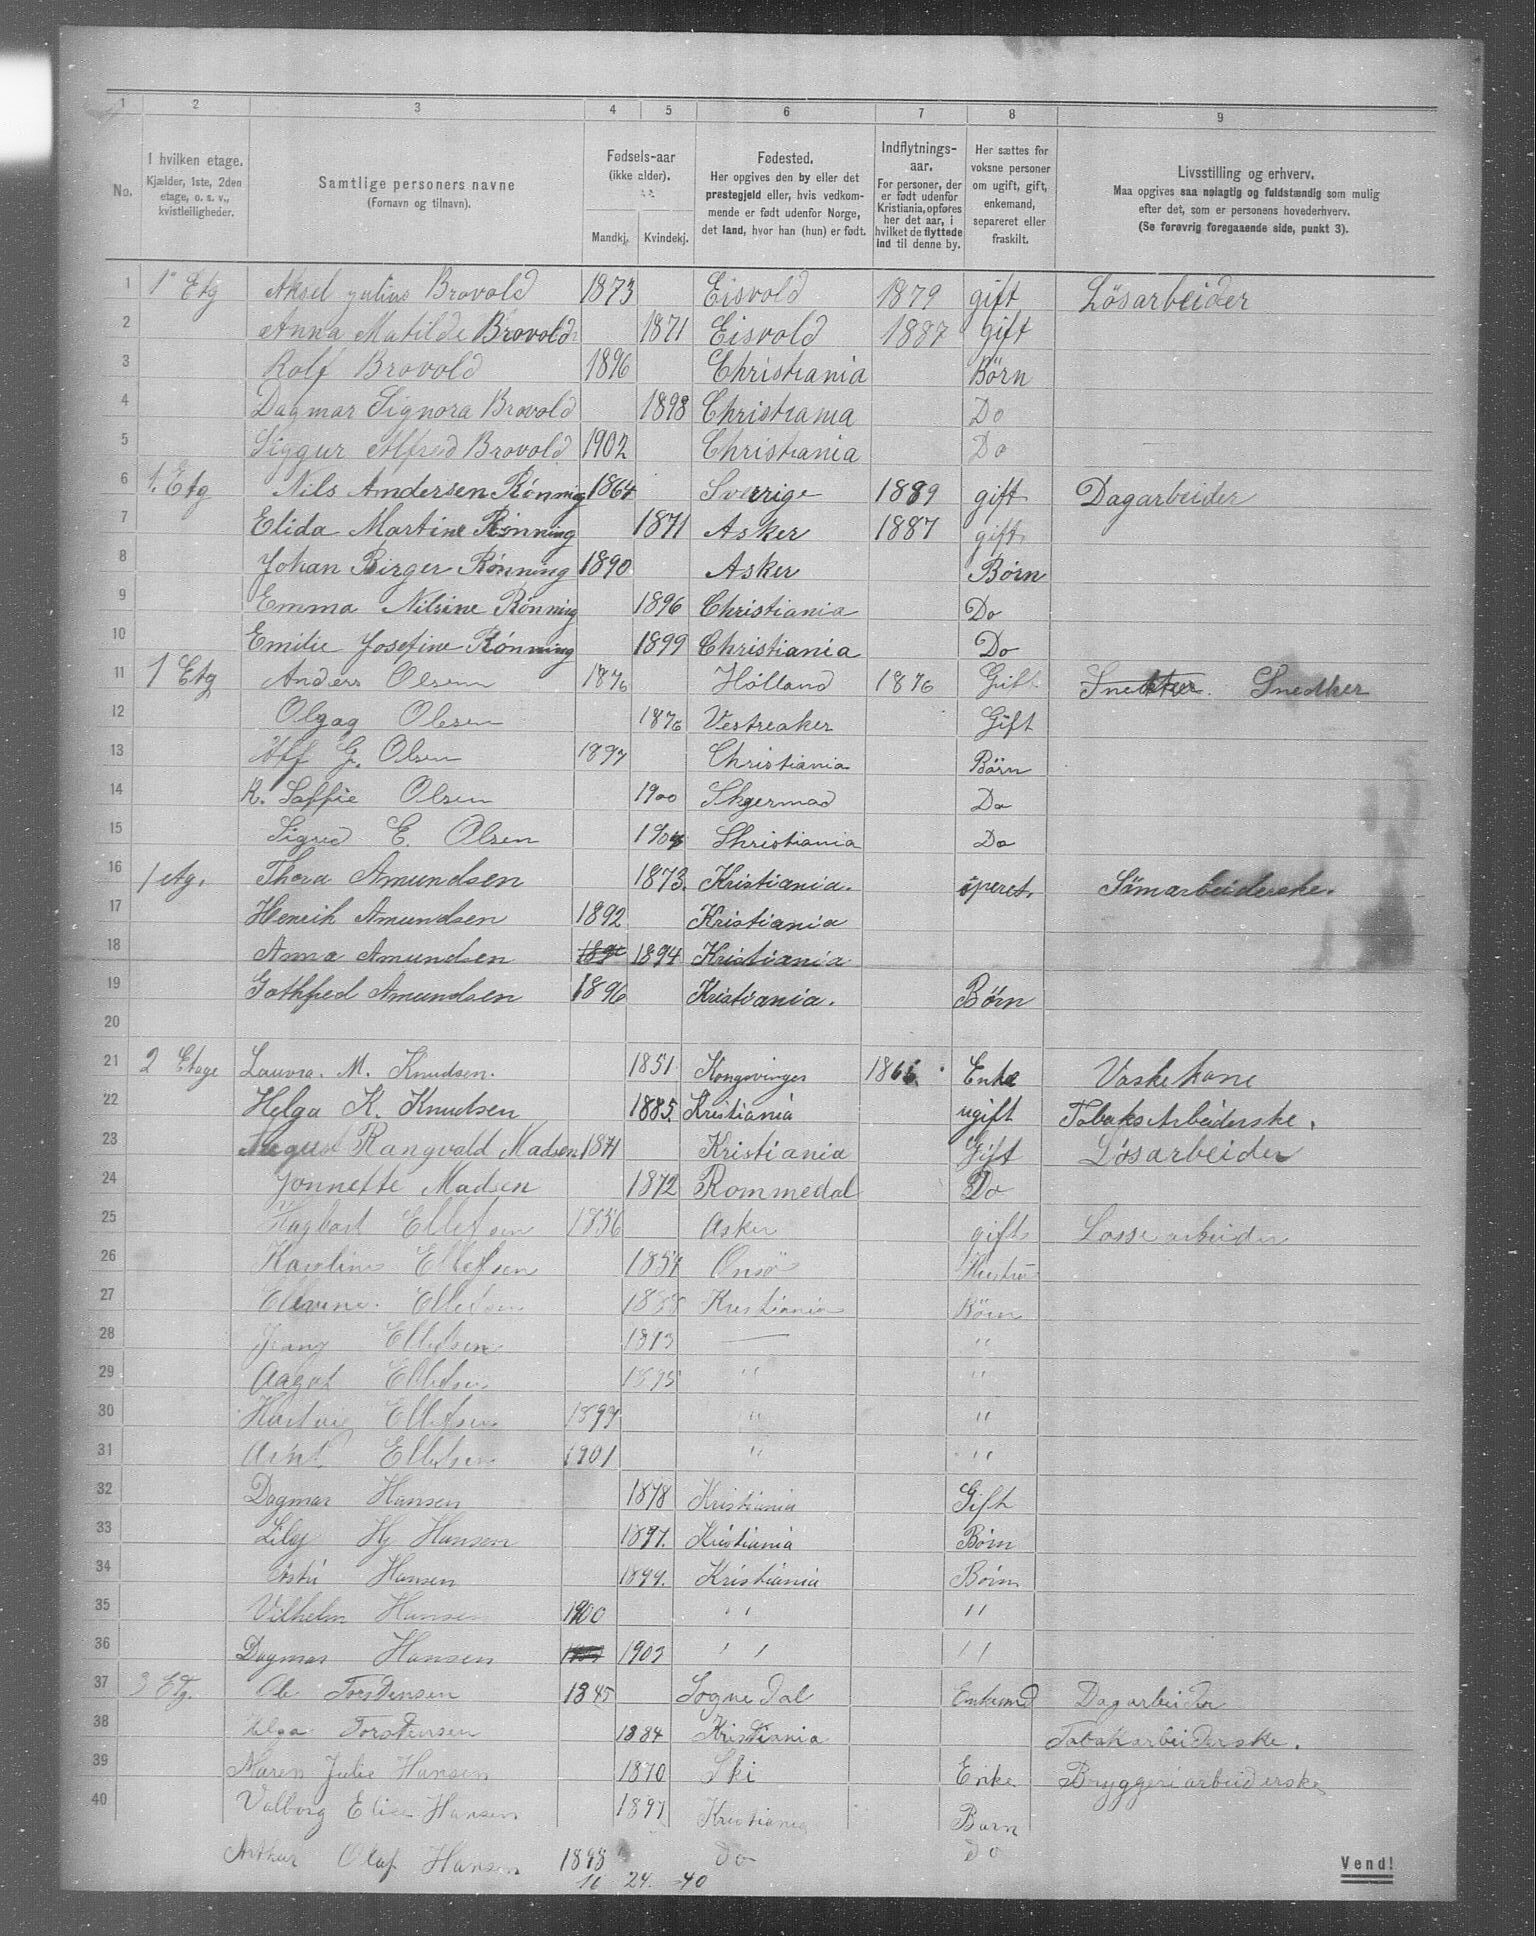 1 2 3 4 5 6 7 8 9
No.
I hvilken etage.
Kjælder, 1ste, 2den
etage, o. s. v.,
kvistleiligheder.
Samtlige personers navne
(Fornavn og tilnavn).
Fødsels-aar
(ikke alder).
Mandkj. Kvindekj.
Fødested.
Her opgives den by eller det
prestegjeld eller, hvis vedkom-
mende er født udenfor Norge,
det land, hvor han (hun) er født.
Indflytnings-
aar.
For personer, der
er født udenfor
Kristiania, opføres
her det aar, i
hvilket de flyttede
ind til denne by.
Her sættes for
voksne personer
om ugift, gift,
enkemand,
separeret eller
fraskilt.
Livsstilling og erhverv.
Maa opgives saa nøiagtig og fuldstændig som mulig
efter det, som er personens hovederhverv.
(Se forøvrig foregaaende side, punkt 3).
1 1" Etg Aksel Julius Brovold 1873 Eisvold 1879 gift Lösarbeider
2 Anna Matilde Brovold 1871 Eisvold 1887 gift
3 Rolf Brovold 1896 Christiania Børn
4 Dagmar Signora Brovold 1898 Christiania Do
5 Siggur Alfred Brovold 1902 Christiania Do
6 1. Etg Nils Andersen Rönning 1864 Sverrige 1889 gift Dagarbeider
7 Elida Martine Rönning 1871 Asker 1887 gift
8 Johan Birger Rönning 1890 Asker Børn
9 Emma Nilsine Rönning 1896 Christiania Do
10 Emilie Josefine Rönning 1899 Christiania Do
11 1 Etg Anders Olsen 1876 Hølland 1876 Gift Snekker. Snedker
12 Olgag Olesen 1876 Vestreaker Gift
13 G. Olsen 1897 Christiania Børn
14 R. Soffie Olsen 1900 Do
15 Sigred E. Olsen Christiania Do
16 1 etg. Thora Amundsen 1873. Kristiania. speret. Sömarbeiderske.
17 Henrik Amundsen 1892 Kristiania
18 Anna Amundsen 1894 Kristiania
19 Gothfred Amundsen 1896 Kristiania. Børn
20
21 2 Etage Lauvra. M. Knudsen. 1851 Kongsvinger Enke Vaskekone
22 Helga K. Knudsen 1885. Kristiania ugift Tobaks Arbeiderske.
23 August Rangvald Madsen 1871 Kristiania Gift Løsarbeider
24 Jonnette Madsen 1872 Rommedal Do
25 Hagbart Ellefsen 1856 Asker gift Losse arbeider
26 Karoline Ellefsen 1854 Onsö Hustru
27 Ellefsen 1888 Kristiania Børn
28 Jenny Ellefsen 1893 — "
29 Aagot Ellefsen 1895 " "
30 Hartvig Ellefsen 1897 " "
31 Arnt Ellefsen 1901 " "
32 Dagmar Hansen 1878 Kristiania Gift
33 Lilly Hj Hansen 1897. Kristiania Børn
34 Hansen 1899. Kristiania Børn
35 Vilhelm Hansen 1900 " "
36 Dagmar Hansen 1903 " "
37 3 Etg. Ole Torstensen 1845 Sognedal Enkemd Dagarbeider
38 Helga Torstensen 1884 Kristiania Tobakarbeiderske.
39 Maren Julie Hansen 1870 Ski Enke Bryggeriarbeiderske
40 Valborg Elise Hansen 1897 Kristiania Barn
Arthur Olaf Hansen 1898 Do Do
16 24. 40
Vend!